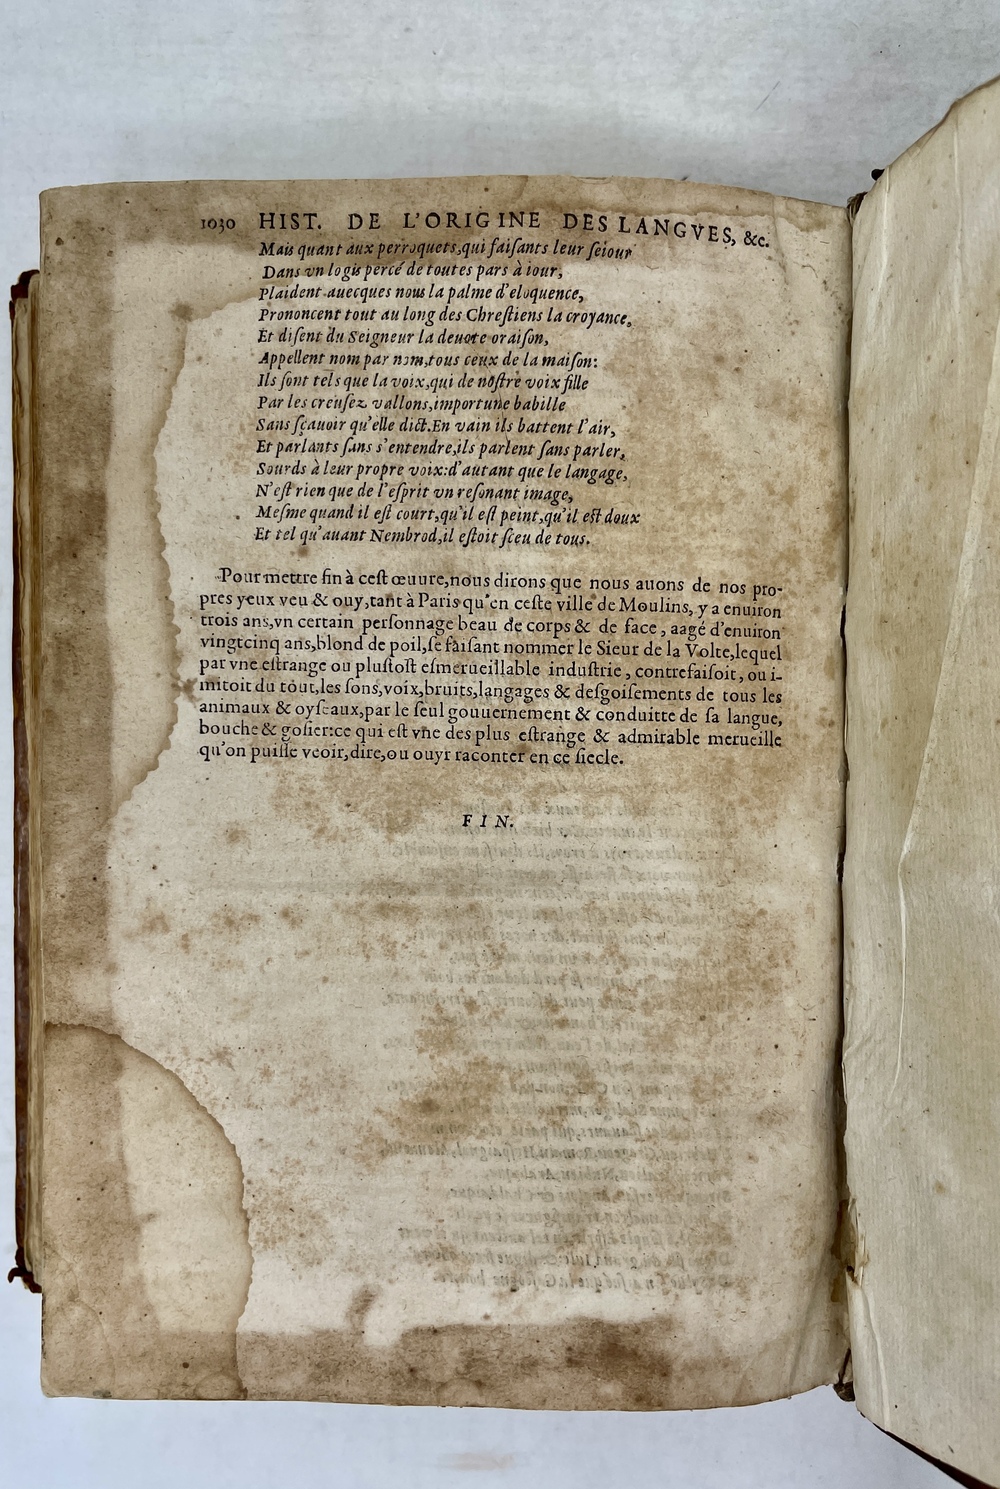 1030 HIST. DE L'ORIGINE DES LANGVES, &c.
Mais quant aux perroquets,qui faiſants leur ſeiour
Dans vn logis percé de toutes pars à iour,
Plaident auecques nous la palme d'eloquence,
Prononcent tout au long des Chreſtiens la croyance,
Et diſent du Seigneur la deuote oraiſon,
Appellent nom par nom,tous ceux de la maiſon:
Ils ſont tels que la voix,qui de noſtre voix fille
Par les creuſez vallons,importune babille
Sans ſçauoir qu'elle dict.En vain ils battent l'air,
Et parlants ſans s'entendre,ils parlent ſans parler,
Sourds à leur propre voix:d'autant que le langage,
N'eſt rien que de l'eſprit vn reſonant image,
Meſme quand il eſt court,qu'il eſt peint,qu'il eſt doux
Et tel qu'auant Nembrod,il eſtoit ſceu de tous.
Pour mettre fin à ceſt œuure,nous dirons que nous auons de nos pro-
pres yeux veu & ouy,tant à Paris qu'en ceſte ville de Moulins, y a enuiron
trois ans,vn certain perſonnage beau de corps & de face, aagé d'enuiron
vingtcinq ans,blond de poil,ſe faiſant nommer le Sieur de la Volte,lequel
par vne eſtrange ou pluſtoſt eſmerueillable induſtrie, contrefaiſoit, ou i-
mitoit du tout,les ſons,voix,bruits,langages & deſgoiſements de tous les
animaux & oyſeaux,par le ſeul gouuernement & conduitte de ſa langue,
bouche & goſier:ce qui eſt vne des plus eſtrange & admirable merueille
qu'on puiſſe veoir,dire,ou ouyr raconter en ce ſiecle.
FIN.